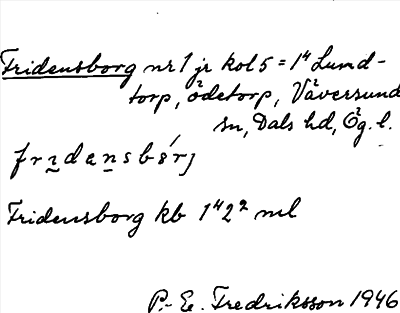 Fridensborg nr 1 jr kol 5 = 1⁴ Lund-
torp, ödetorp, Väversund
sn, Dals hd, Ög. l.
frıdensbórj
Fridensborg kb 1⁴2² ml
P.-E. Fredriksson 1946